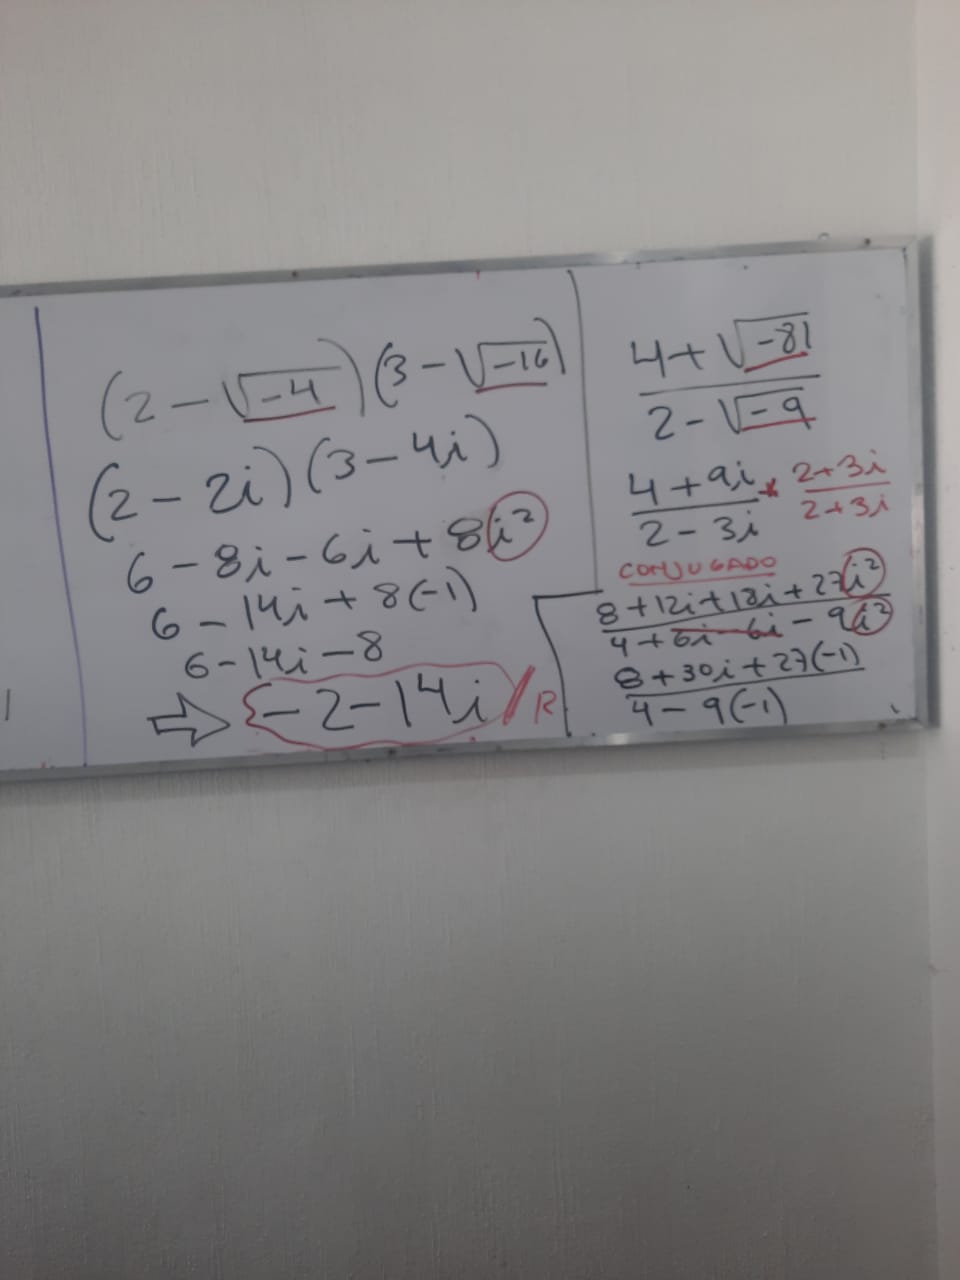 (2 - √-4)(3 - √-16)
(2 - 2i)(3 - 4i)
6 - 8i - 6i + 8i²
6 - 14i + 8(-1)
6 - 14i - 8
⇒ -2 - 14i // R
4 + √-81
2 - √-9
4 + 9i * 2+3i
2 - 3i 2+3i
CONJUGADO
8 + 12i + 18i + 27i²
4 + 6i - 6i - 9i²
8 + 30i + 27(-1)
4 - 9(-1)